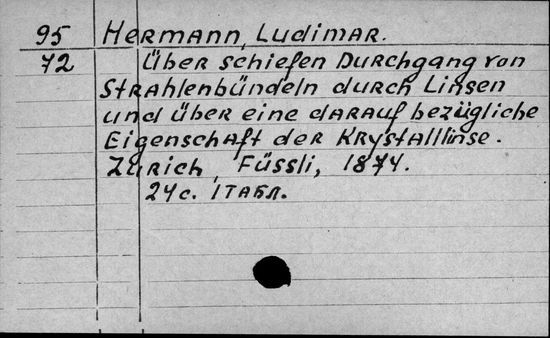 95 Hermann, Ludimar.
72 Über schiefen Durchgang von
Strahlenbündeln durch Linsen
und über eine darauf bezügliche
Eigenschaft der Krystalllinse.
Zürich, Füssli, 1874.
24с. 1 табл.